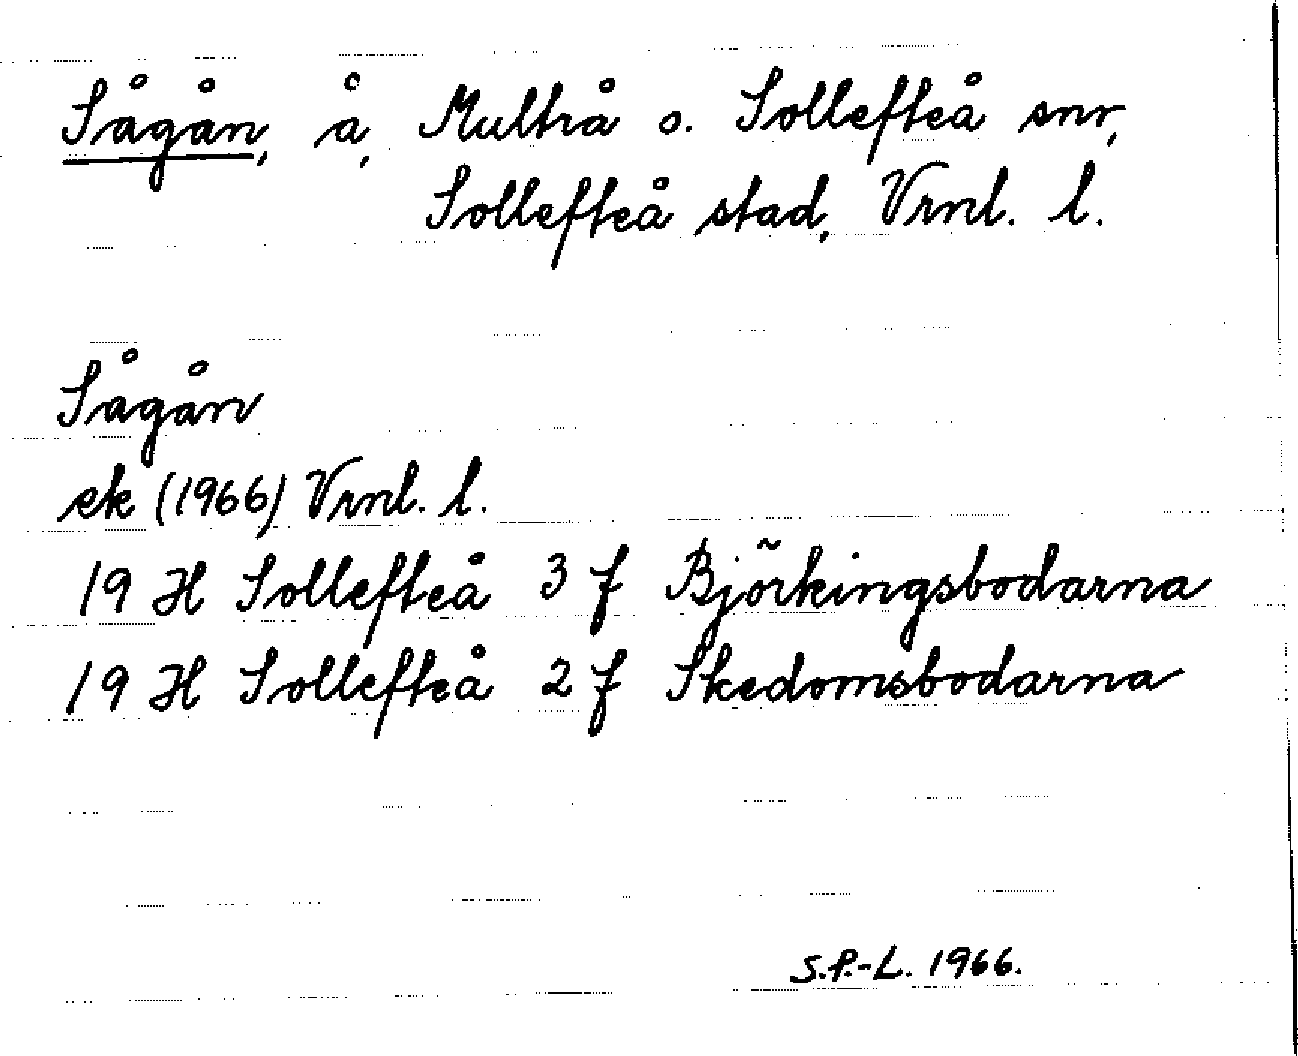 Sågån, å, Multrå o. Sollefteå snr,
Sollefteå stad, Vrnl. l.
Sågån
ek (1966) Vrnl. l.
19 H Sollefteå 3 f Björkingsbodarna
19 H Sollefteå 2 f Skedomsbodarna
S.P.-L. 1966.